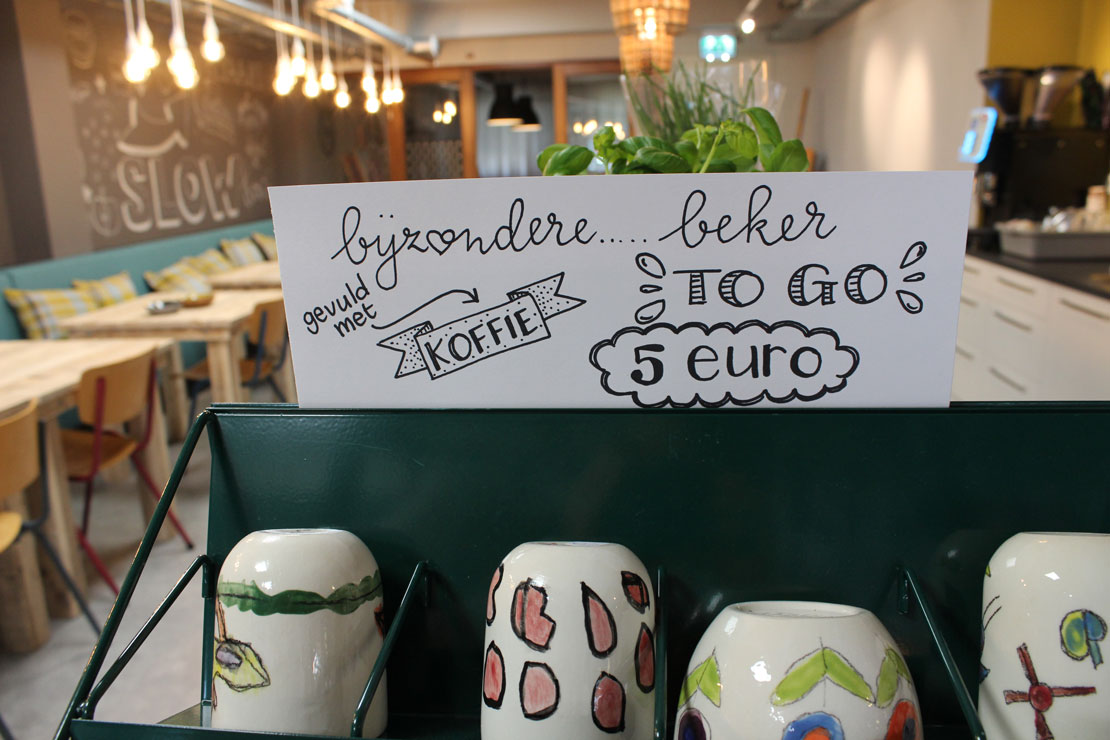 bijzondere..... beker
gevuld
met
KOFFIE
TO GO
5 euro
SLOW